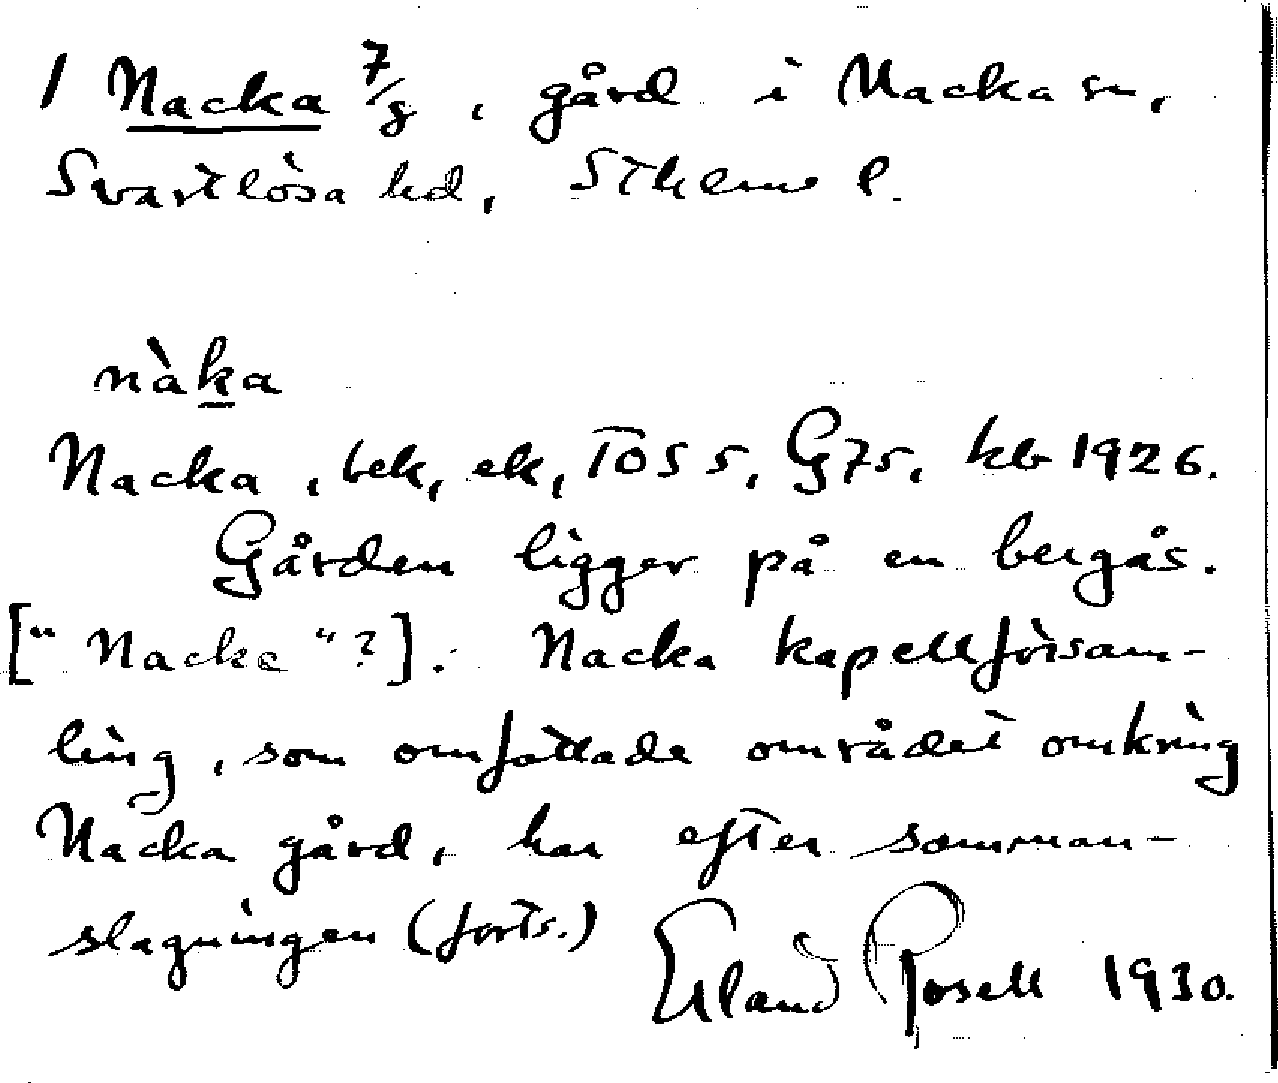 1 Nacka 7/8, gård i Nacka sn,
Svartlösa hd, Sthlms l.
nàka
Nacka, bek, ek, TOS 5, G75, kb 1926.
Gården ligger på en bergås.
["Nacke"?]. Nacka kapellförsam-
ling, som omfattade området omkring
Nacka gård, har efter samman-
slagningen (forts.)
Erland Rosell 1930.